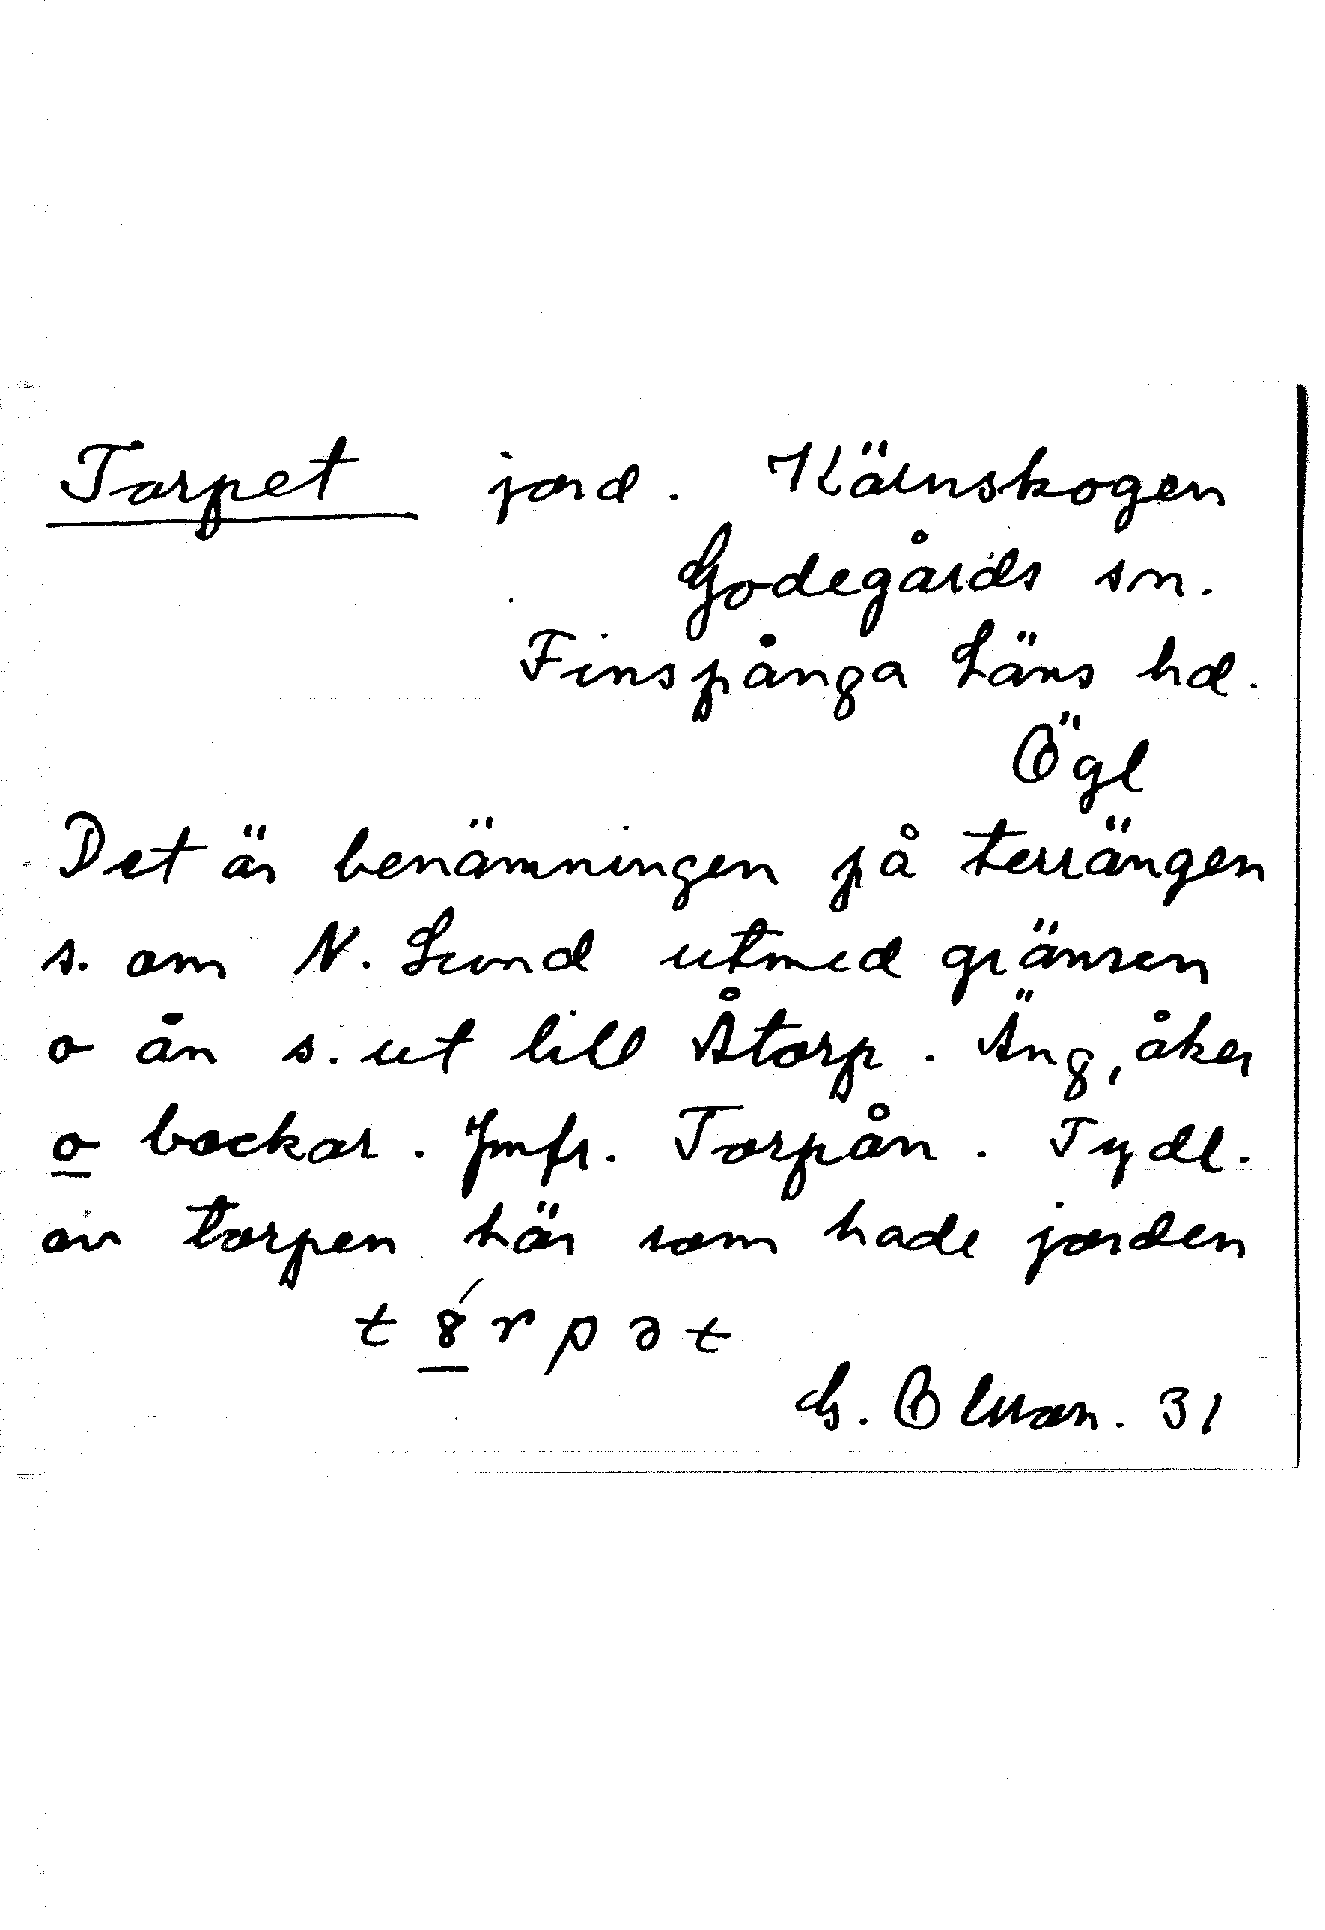 Torpet jord. Kärnskogen
Godegårds sn.
Finspånga Läns hd.
Ögl
Det är benämningen på terrängen
s. om N. Lund utmed gränsen
o ån s. ut till Åtorp. Äng, åker
o backar. Jmfr. Torpån. Tydl.
av torpen här som hade jorden
t 8́ r p ə t
G. Olsson. 31